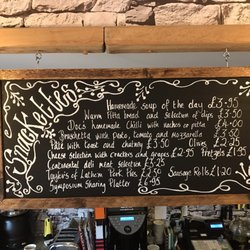 Snackettes
Homemade soup of the day £3.95
Warm Pitta bread and selection of dips £3.50
Doc's homemade Chilli with nachos or pitta £4.00
Bruschetta with Pesto, tomato and mozzarella £3.50
Pâté with toast and chutney £3.50 Olives £2.25
Cheese selection with crackers and grapes £2.95 Pretzels £1.95
Continental deli meat selection £5.25
of Lathom Pork Pies £2.50 Sausage Rolls £1.20
Symposium Sharing Platter £6.95